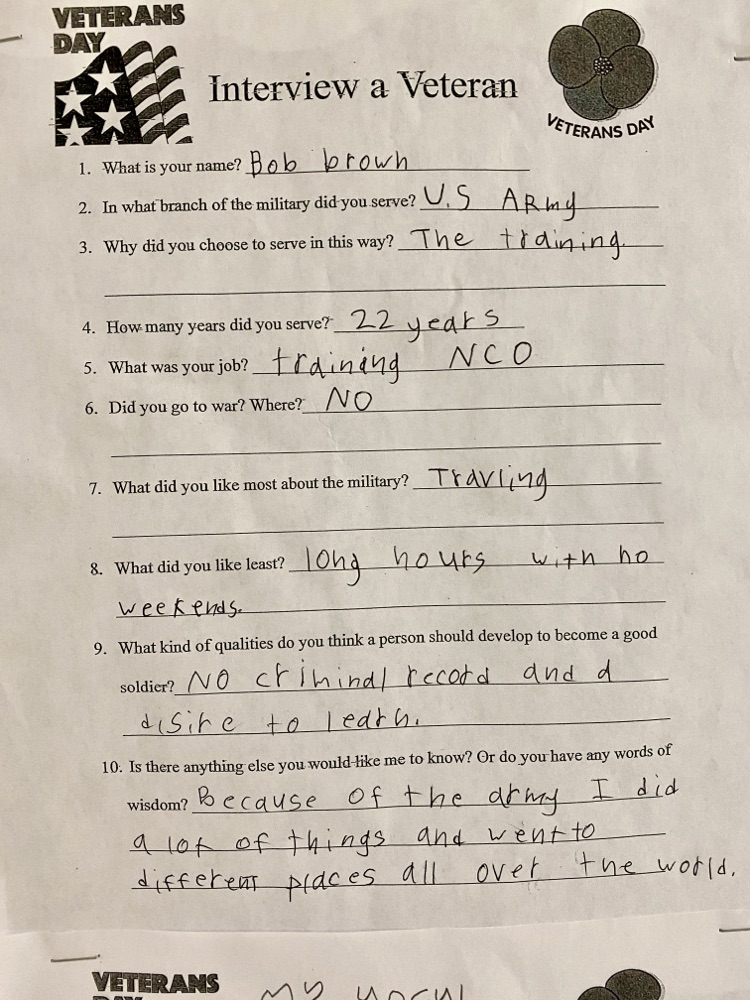 VETERANS
DAY
Interview a Veteran
VETERANS DAY
1. What is your name? Bob brown
2. In what branch of the military did you serve? U.S ARmy
3. Why did you choose to serve in this way? The training.
4. How many years did you serve? 22 years
5. What was your job? training NCO
6. Did you go to war? Where? NO
7. What did you like most about the military? Travling
8. What did you like least? long hours with no
weekends.
9. What kind of qualities do you think a person should develop to become a good
soldier? NO criminal record and a
disire to learn.
10. Is there anything else you would like me to know? Or do you have any words of
wisdom? Because of the army I did
a lot of things and went to
different places all over the world.
VETERANS
DAY
my